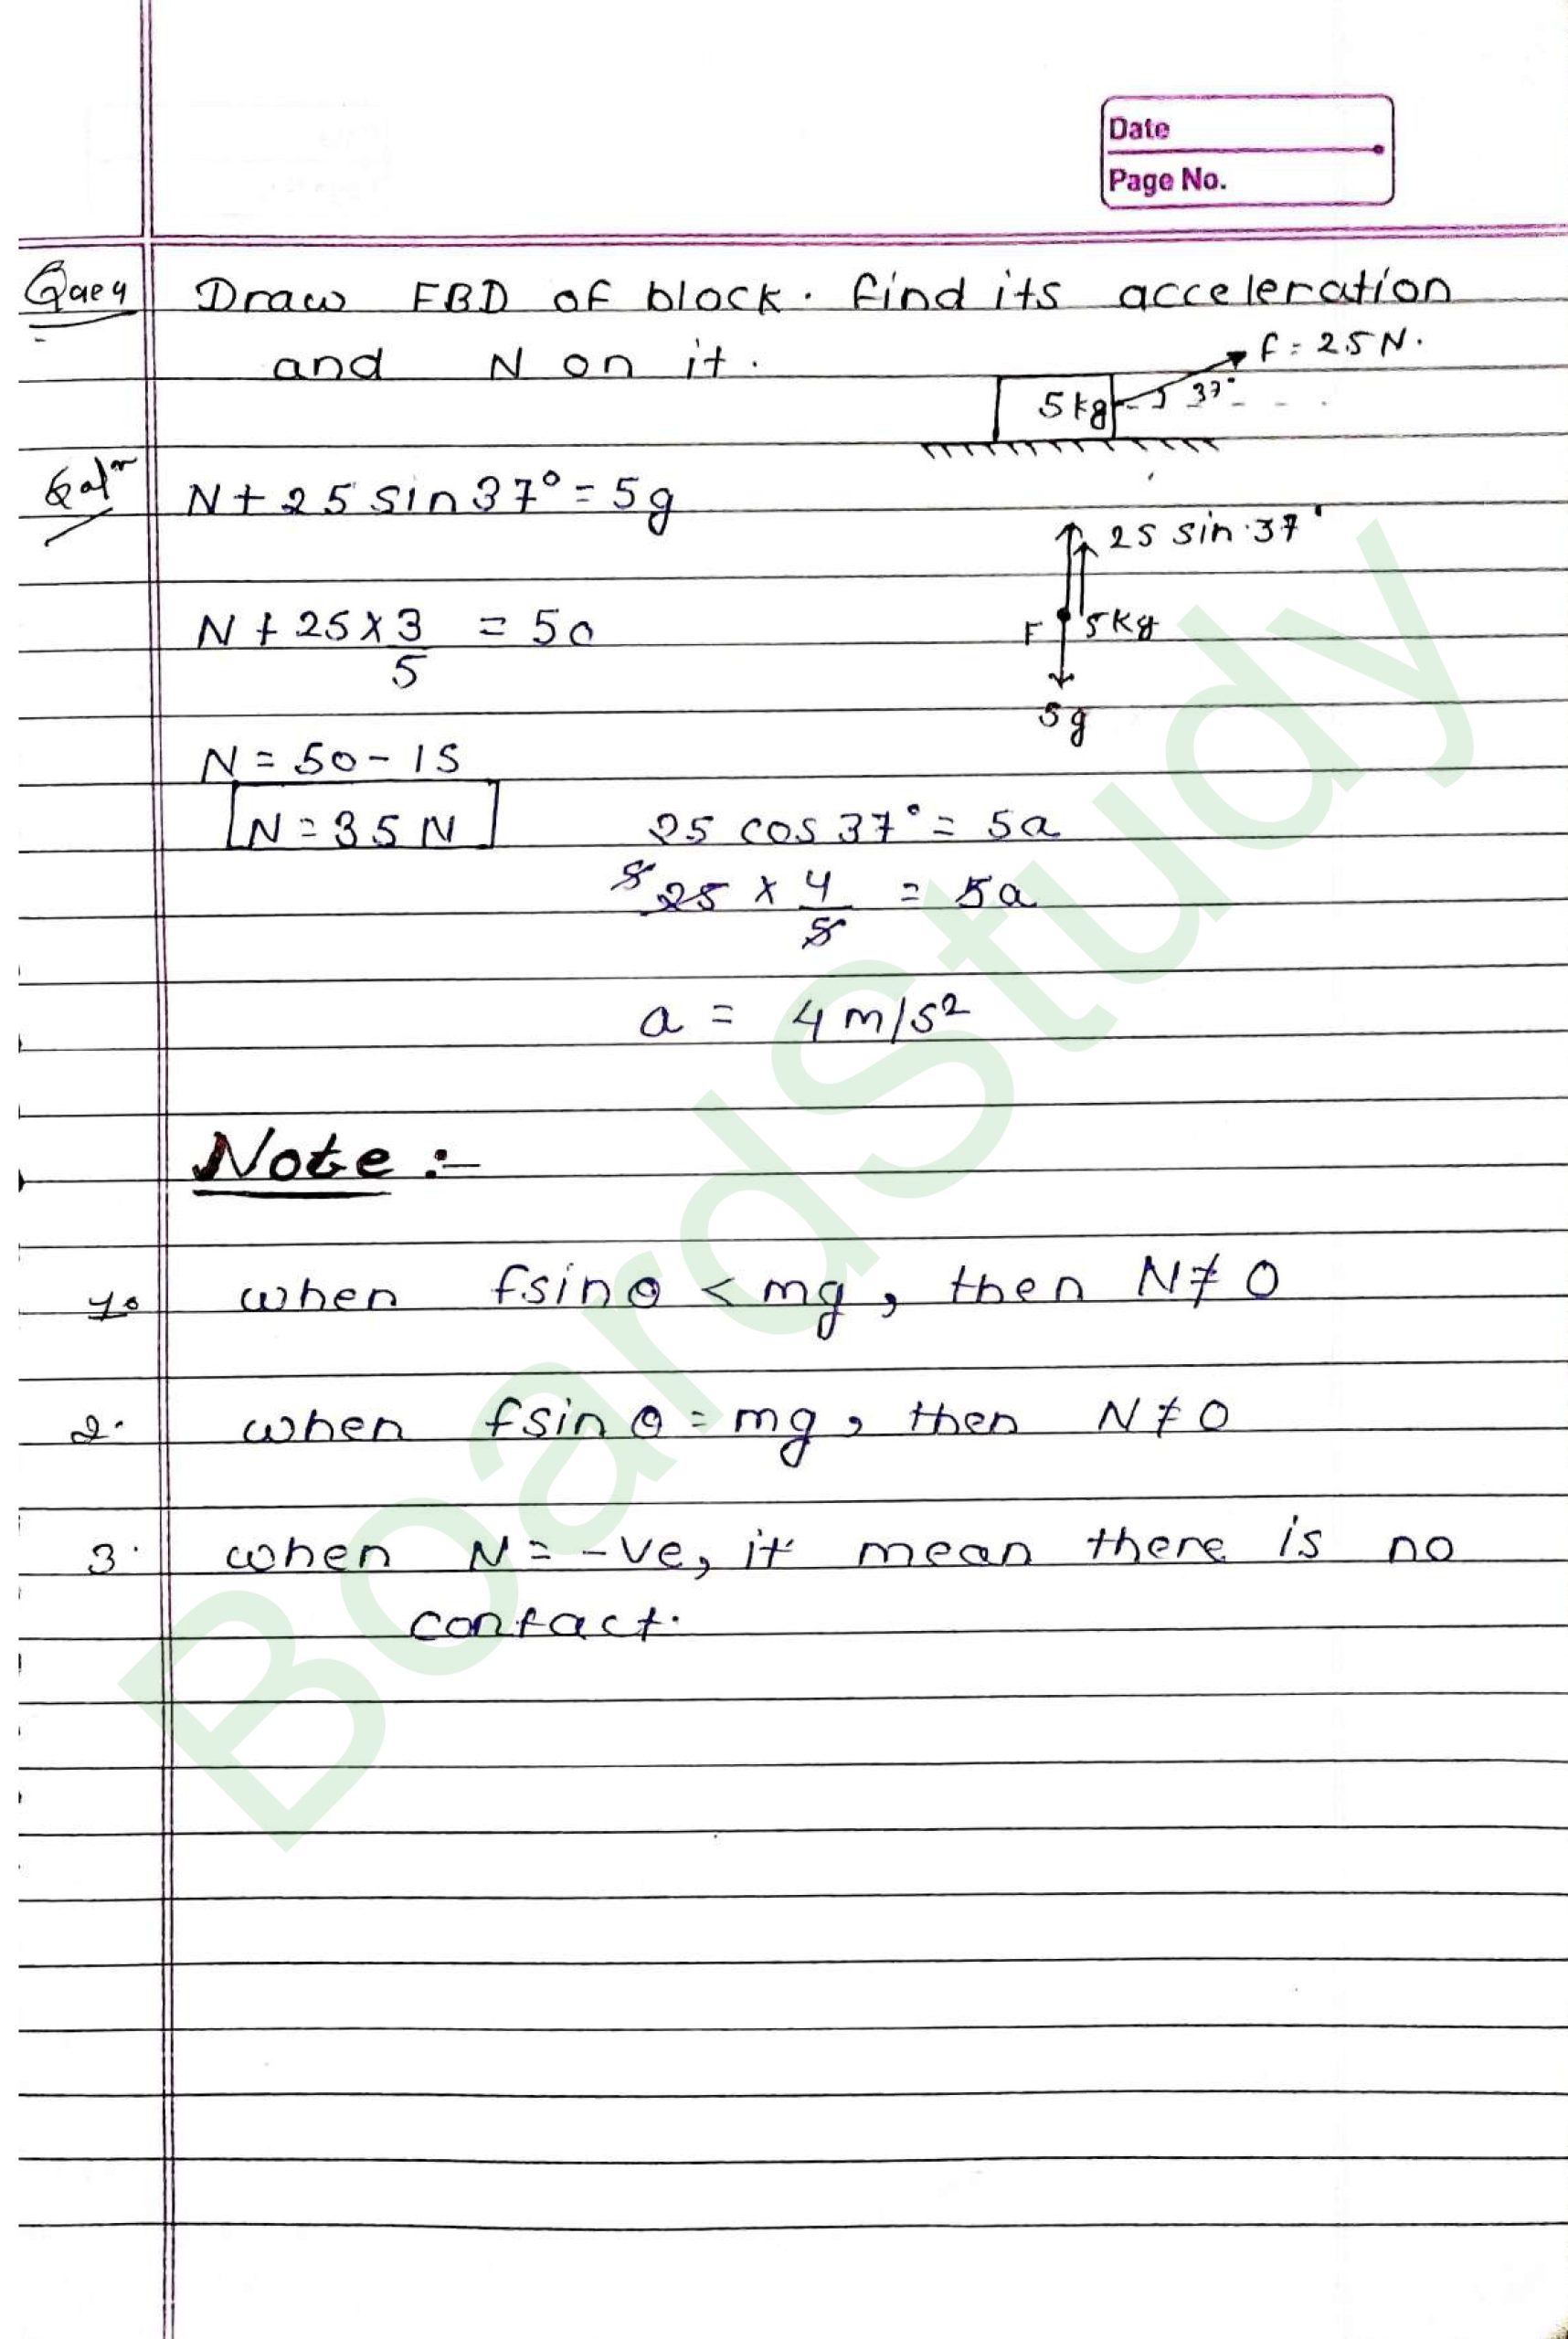 Date
Page No.
Que 4 Draw FBD of block. find its acceleration
and N on it.
f = 25 N.
5 kg 37°
Solⁿ N + 25 sin 37° = 5g
25 sin 37°
N + 25 × 3/5 = 50
F 5kg
5g
N = 50 - 15
N = 35 N
25 cos 37° = 5a
5 25 × 4/5 = 5a
a = 4 m/s²
Note :-
1. when fsinθ < mg, then N ≠ 0
2. when fsinθ = mg, then N ≠ 0
3. when N = -ve, it mean there is no
contact.
BoardStudy